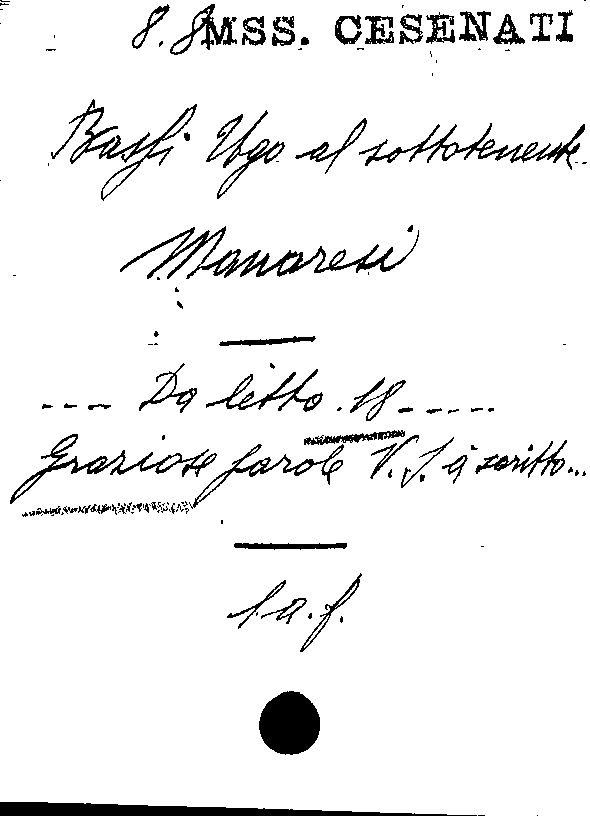 8.8 MSS. CESENATI
Bassi Ugo al sottotenente
Manaresi
--- Da letto 18 -----
Graziose parole V. S. à scritto...
1 a. f.